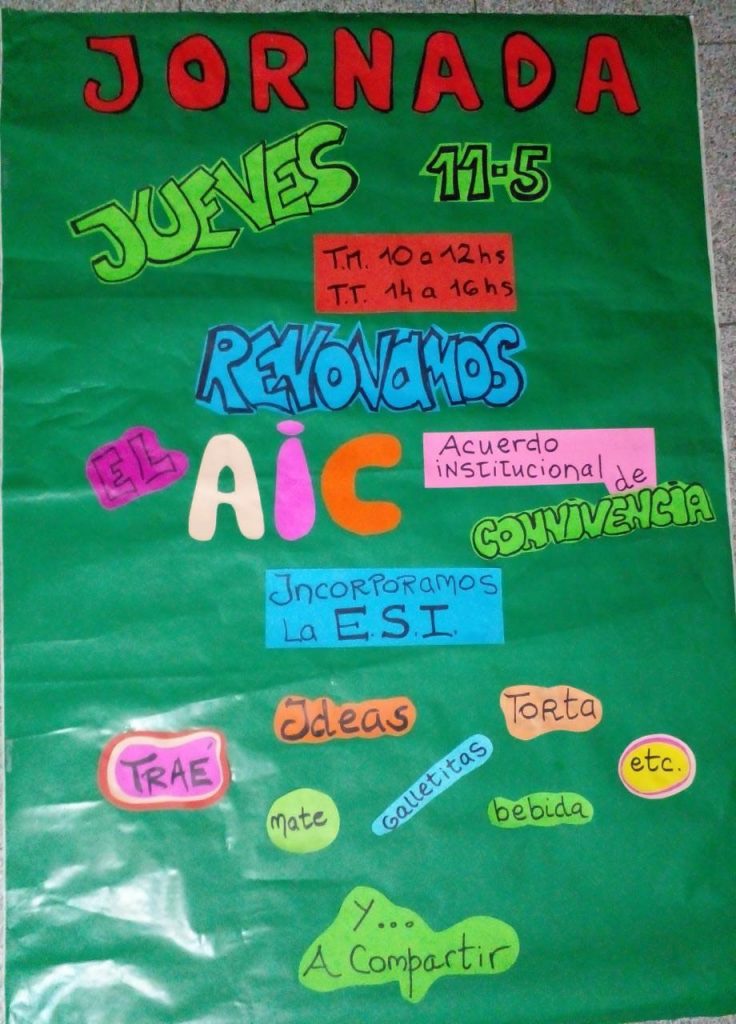 JORNADA
JUEVES 11-5
T.M. 10 a 12hs
T.T. 14 a 16hs
RENOVAMOS
EL AIC Acuerdo
institucional
de
CONVIVENCIA
Incorporamos
La E.S.I.
Ideas Torta
TRAÉ etc.
mate Galletitas bebida
Y...
A Compartir